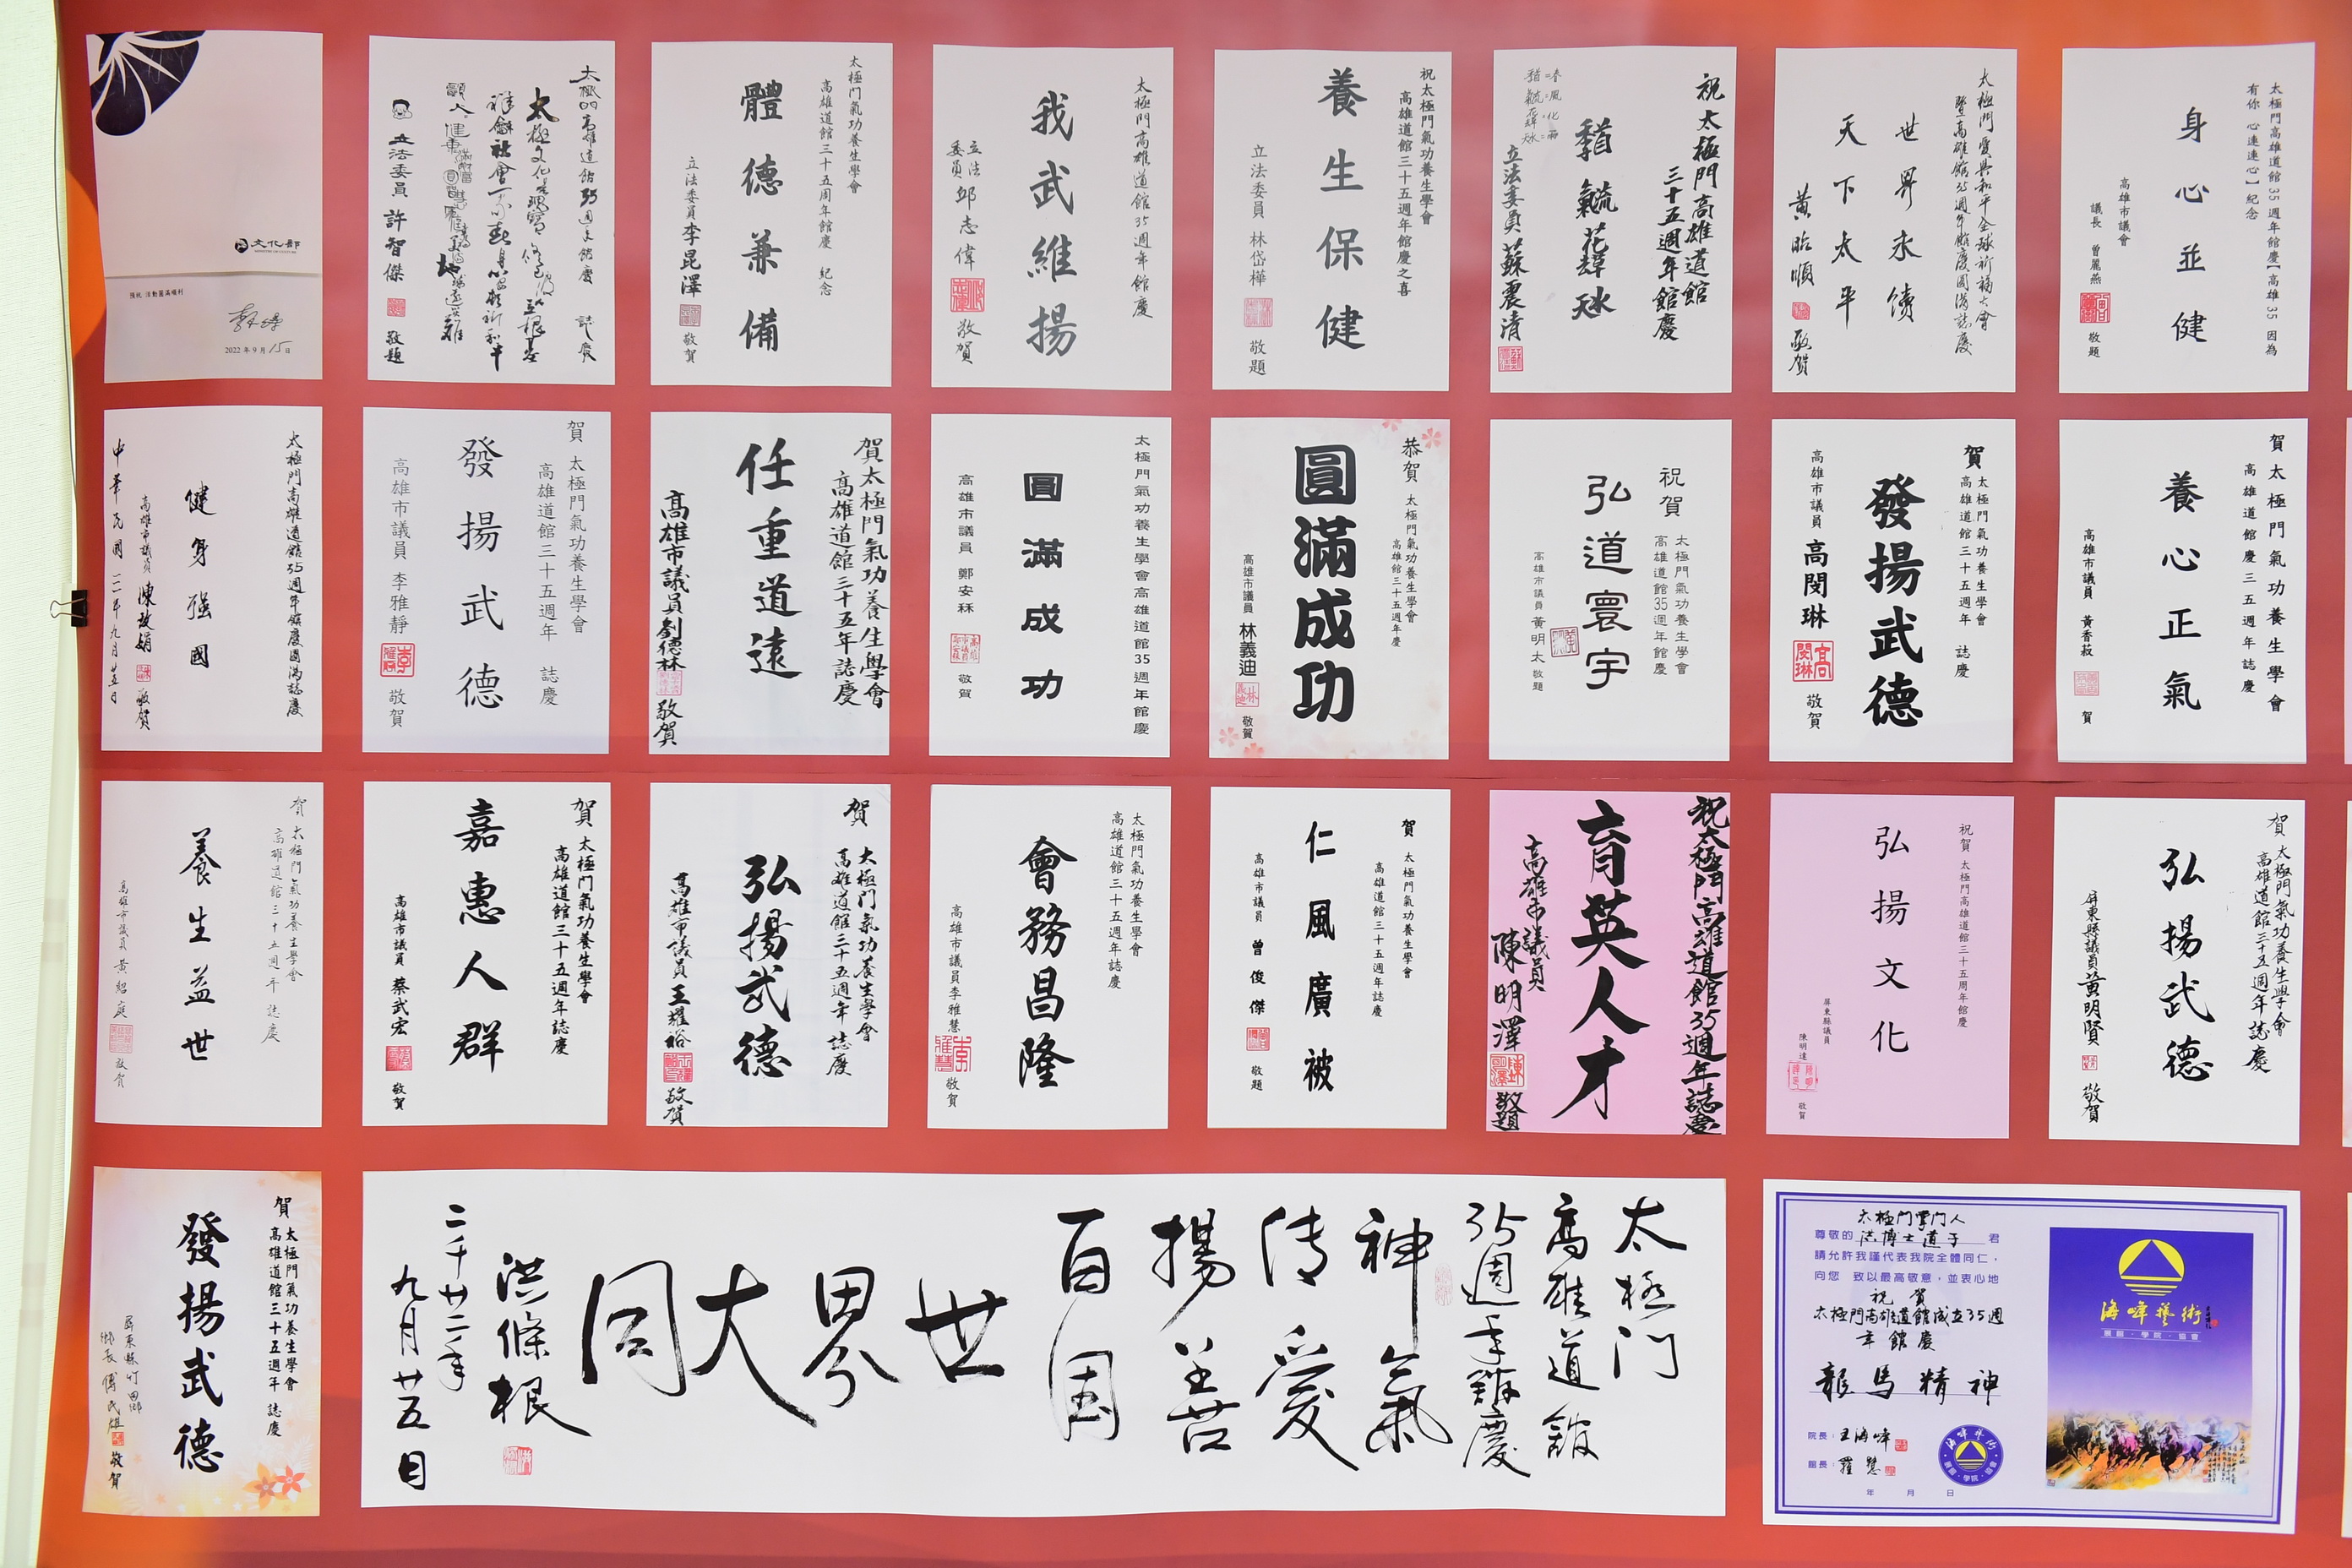 文化部
MINISTRY OF CULTURE
預祝 活動圓滿順利
2022 年 9 月 15 日
太極門高雄道館35週年館慶 誌慶
立法委員 許智傑
敬題
太極門氣功養生學會
高雄道館三十五周年館慶 紀念
體德兼備
立法委員 李昆澤
敬賀
太極門高雄道館35週年館慶
我武維揚
立法委員 邱志偉
敬賀
祝太極門氣功養生學會
高雄道館三十五週年館慶之喜
養生保健
立法委員 林岱樺
敬題
祝太極門高雄道館
三十五週年館慶
立法委員 蘇震清
太極門愛與和平全球祈福大會
暨高雄館35週年館慶圓滿誌慶
世界永續
天下太平
黃昭順
敬賀
太極門高雄道館35週年館慶【高雄35 因為
有你 心連連心】紀念
身心並健
高雄市議會
議長 曾麗燕
敬題
太極門高雄道館35週年館慶圓滿誌慶
健身強國
高雄市議員 陳玫娟
敬賀
中華民國一一一年九月廿五日
賀 太極門氣功養生學會
高雄道館三十五週年 誌慶
發揚武德
高雄市議員 李雅靜
敬賀
賀太極門氣功養生學會
高雄道館三十五年誌慶
任重道遠
高雄市議員劉德林
敬賀
太極門氣功養生學會高雄道館35週年館慶
圓滿成功
高雄市議員 鄭安秝
敬賀
恭賀 太極門氣功養生學會
高雄館三十五週年慶
圓滿成功
高雄市議員 林義迪
敬賀
祝賀 太極門氣功養生學會
高雄道館35週年館慶
弘道寰宇
高雄市議員 黃明太 敬題
賀 太極門氣功養生學會
高雄道館三十五週年 誌慶
發揚武德
高雄市議員 高閔琳
敬賀
賀太極門氣功養生學會
高雄道館慶三五週年誌慶
養心正氣
高雄市議員 黃香菽
賀
賀 太極門氣功養生學會
高雄道館三十五週年 誌慶
養生益世
高雄市議員 黃紹庭
敬賀
賀 太極門氣功養生學會
高雄道館三十五週年誌慶
嘉惠人群
高雄市議員 蔡武宏
敬賀
賀 太極門氣功養生學會
高雄道館三十五週年 誌慶
弘揚武德
高雄市議員王耀裕
敬賀
太極門氣功養生學會
高雄道館三十五週年誌慶
會務昌隆
高雄市議員李雅慧
敬賀
賀 太極門氣功養生學會
高雄道館三十五週年誌慶
仁風廣被
高雄市議員 曾俊傑
敬題
祝太極門高雄道館35週年誌慶
育英人才
高雄市議員
陳明澤
敬題
祝賀 太極門高雄道館三十五周年館慶
弘揚文化
屏東縣議員
陳明達
敬賀
賀 太極門氣功養生學會
高雄道館三十五週年誌慶
弘揚武德
屏東縣議員黃明賢
敬賀
賀 太極門氣功養生學會
高雄道館三十五週年 誌慶
發揚武德
屏東縣竹田鄉
鄉長 傅民雄
敬賀
太極門
高雄道館
35週年館慶
神氣
传愛
揚善
百国
世界大同
洪條根
二千廿二年
九月廿五日
太極門掌門人
尊敬的 洪博士道子 君
請允許我謹代表我院全體同仁，
向您 致以最高敬意，並衷心地
祝 賀
太極門高雄道館成立35週
年館慶
龍馬精神
院長：王海峰
館長：羅慧
年 月 日
海峰藝術
畫廊・學院・協會